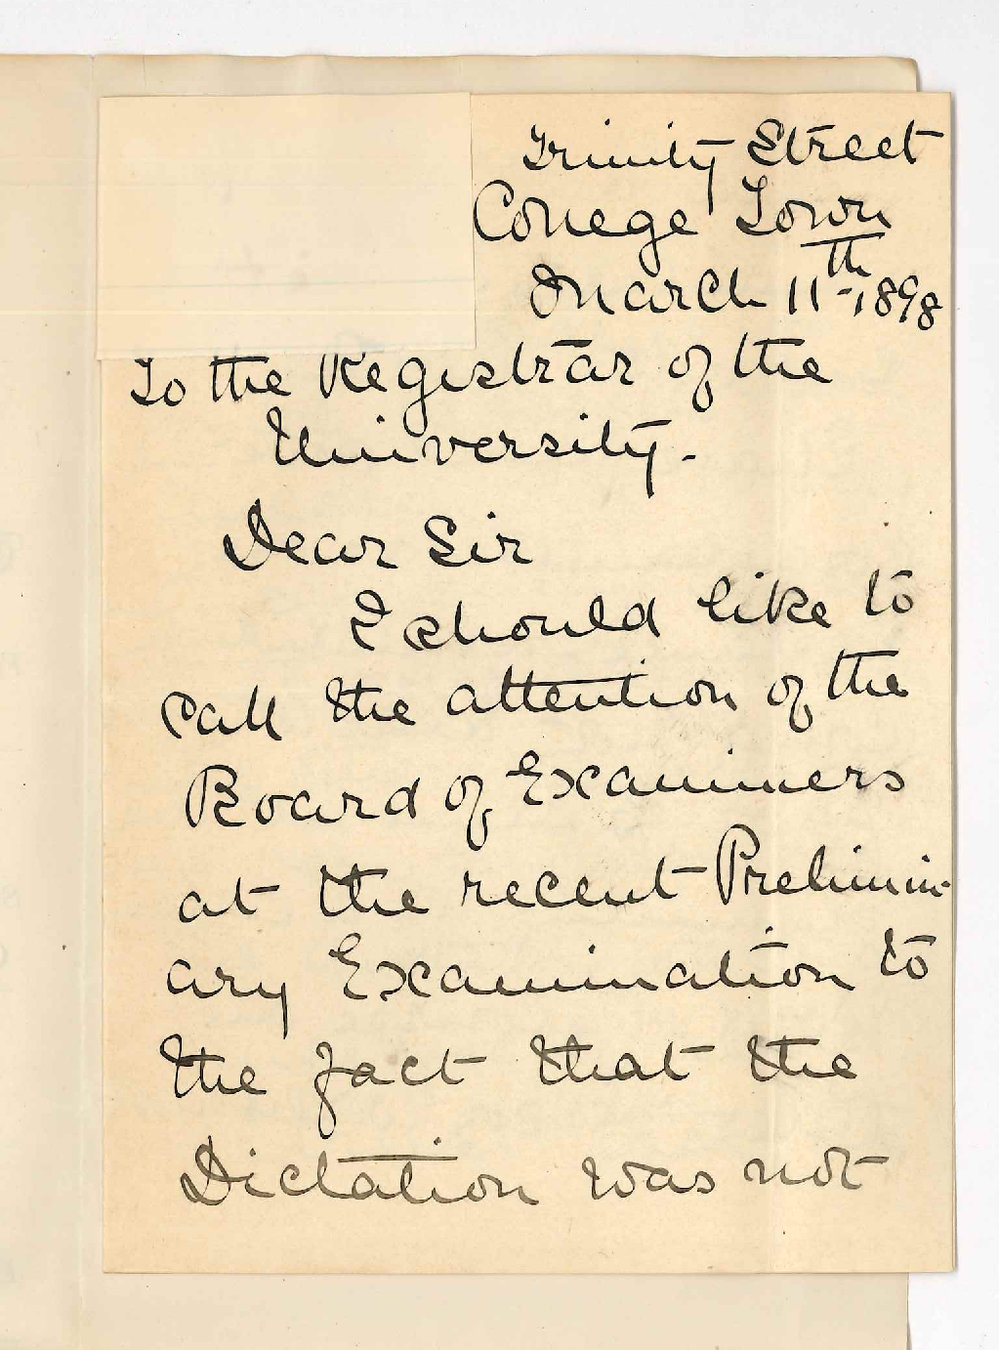 Trinity Street
College Town
March 11th 1898
To the Registrar of the
University.
Dear Sir
I should like to
call the attention of the
Board of Examiners
at the recent Prelimin-
ary Examination to
the fact that the
Dictation was not